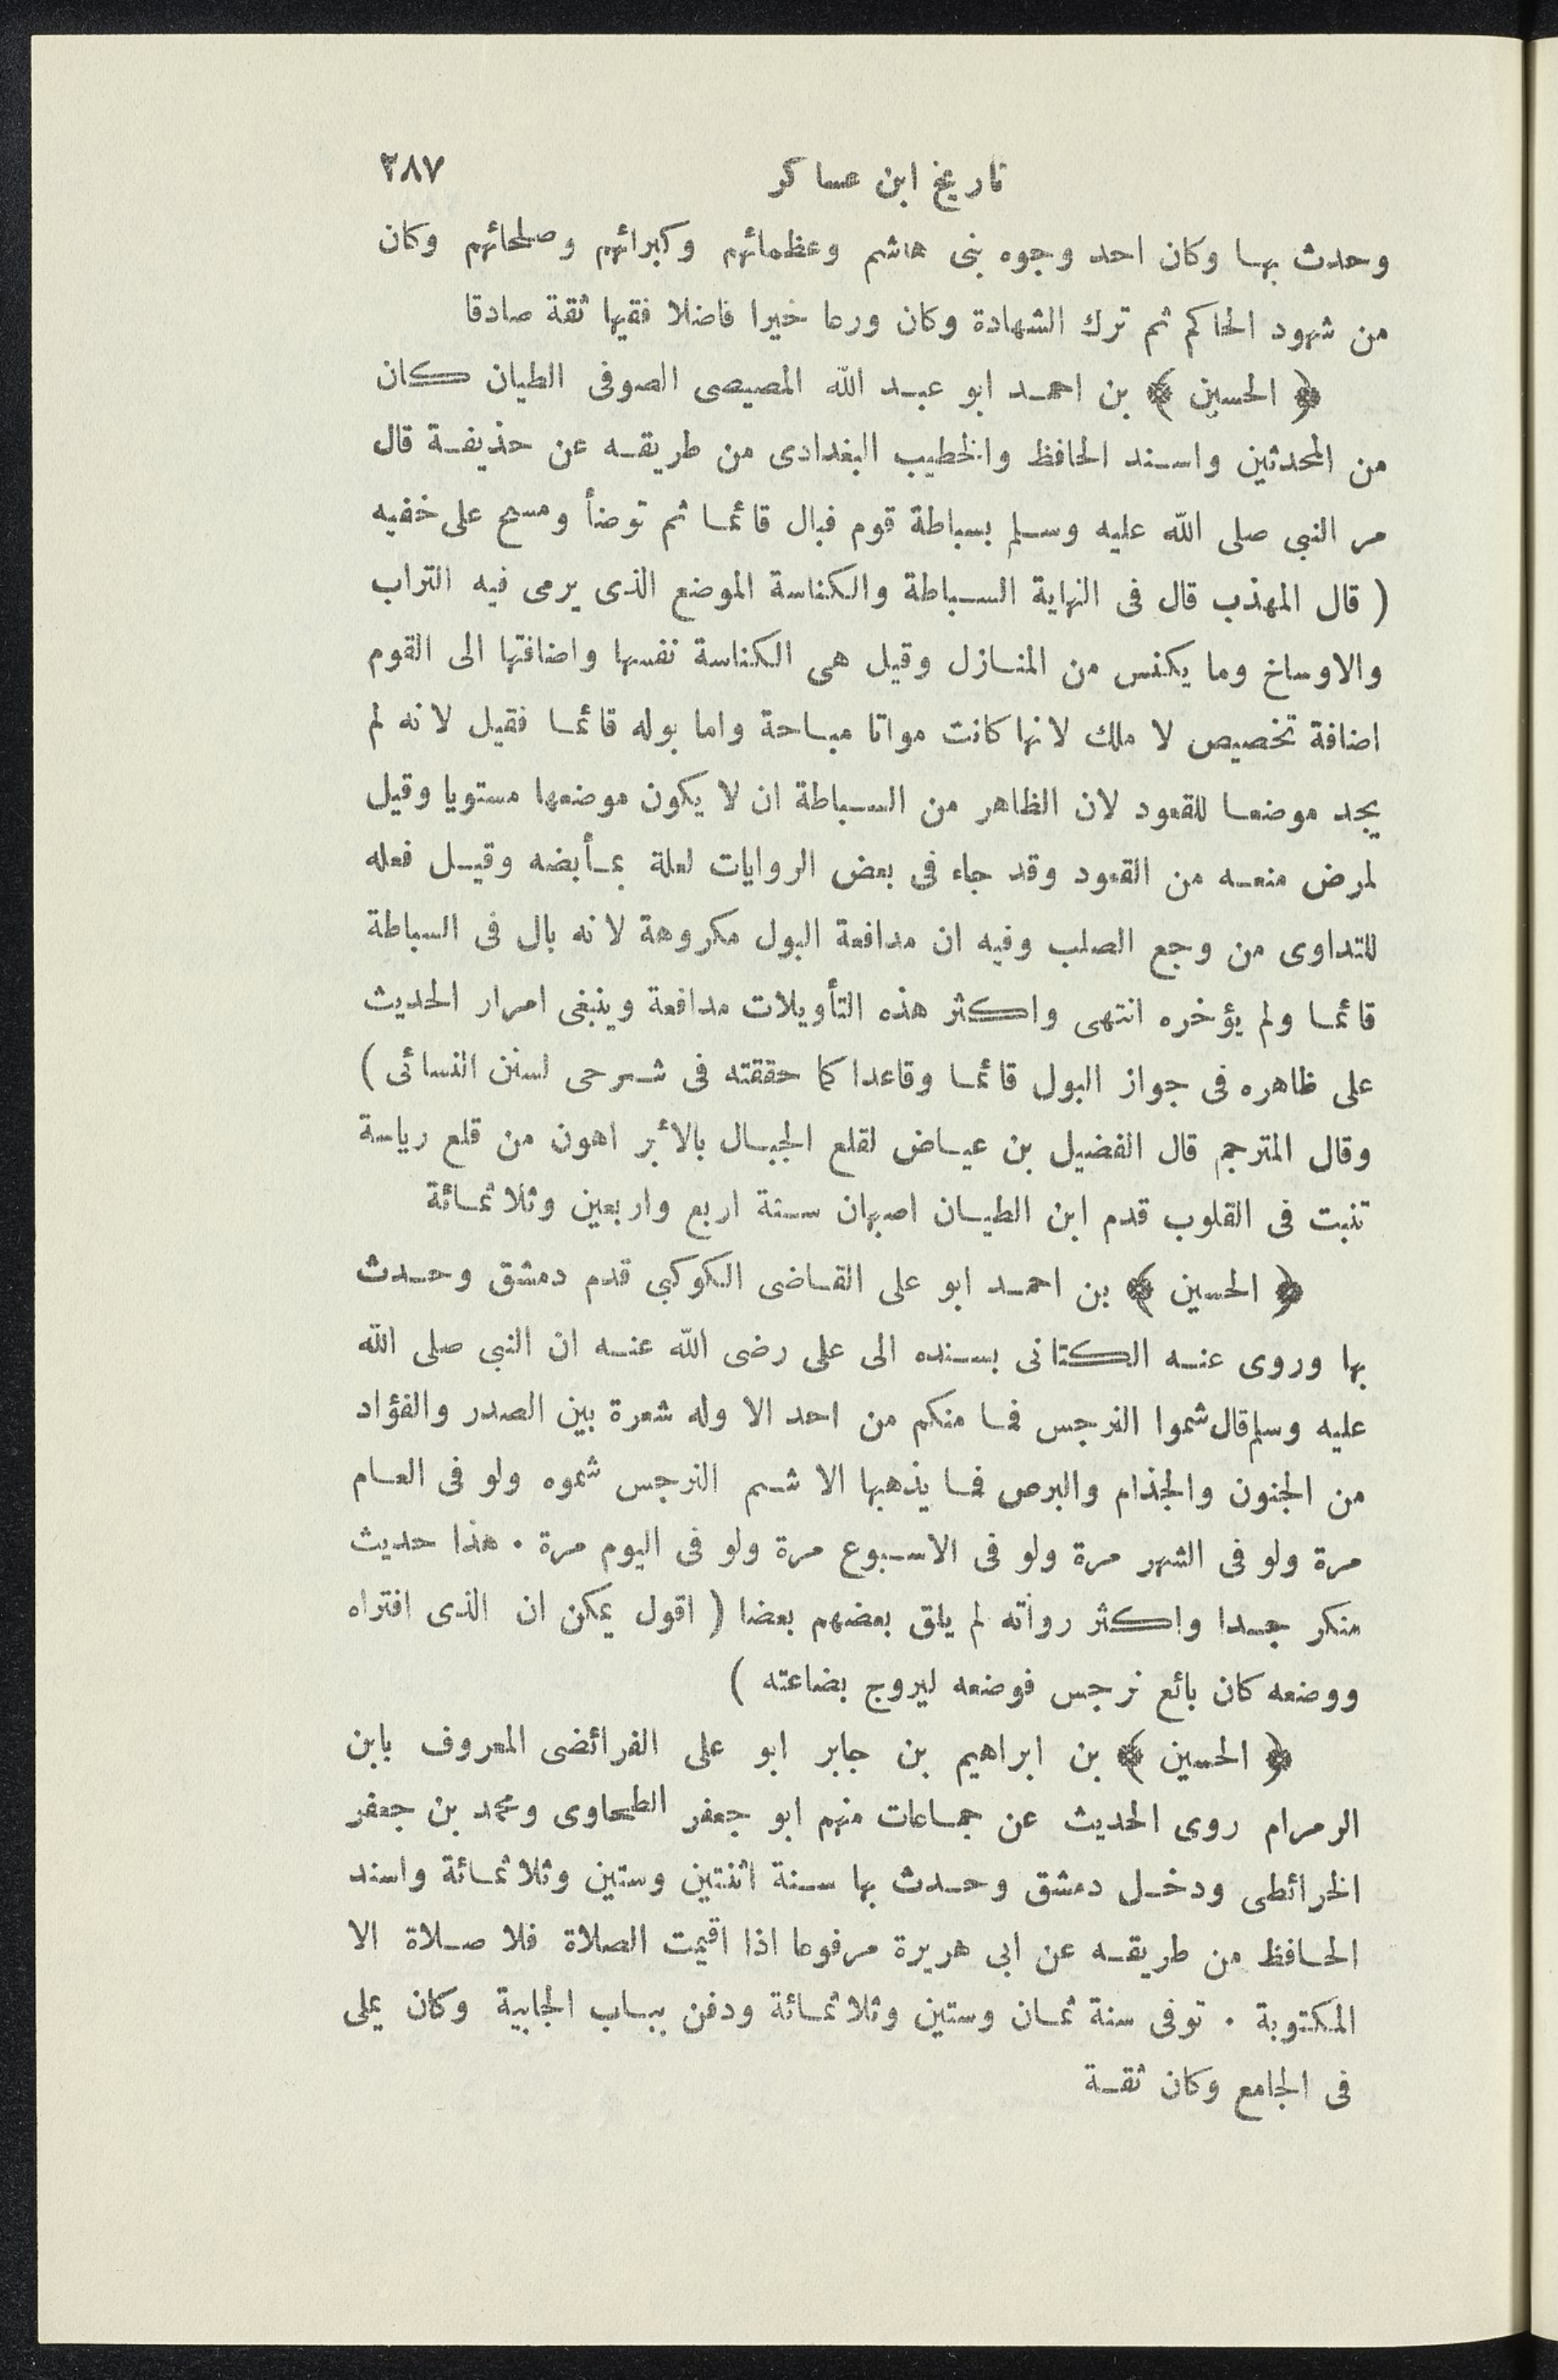 تاريخ ابن عساكر ٢٨٧
وحدث بها وكان احد وجوه بنى هاشم وعظمائهم وكبرائهم وصلحائهم وكان
من شهود الحاكم ثم ترك الشهادة وكان ورعا خيرا فاضلا فقيها ثقة صادقا
﴿ الحسين ﴾ بن احمد ابو عبد الله المصيصى الصوفى الطيان كان
من المحدثين واسند الحافظ والخطيب البغدادى من طريقه عن حذيفة قال
مر النبى صلى الله عليه وسلم بسباطة قوم فبال قائما ثم توضأ ومسح على خفيه
( قال المهذب قال فى النهاية السباطة والكناسة الموضع الذى يرمى فيه التراب
والاوساخ وما يكنس من المنازل وقيل هى الكناسة نفسها واضافتها الى القوم
اضافة تخصيص لا ملك لانها كانت مواتا مباحة واما بوله قائما فقيل لانه لم
يجد موضعا للقعود لان الظاهر من السباطة ان لا يكون موضعها مستويا وقيل
لمرض منعه من القعود وقد جاء فى بعض الروايات لعلة بمأبضه وقيل فعله
للتداوى من وجع الصلب وفيه ان مدافعة البول مكروهة لانه بال فى السباطة
قائما ولم يؤخره انتهى واكثر هذه التأويلات مدافعة وينبغى امرار الحديث
على ظاهره فى جواز البول قائما وقاعدا كما حققته فى شرحى لسنن النسائى )
وقال المترجم قال الفضيل بن عياض لقلع الجبال بالأبر اهون من قلع رياسة
تنبت فى القلوب قدم ابن الطيان اصبهان سنة اربع واربعين وثلاثمائة
﴿ الحسين ﴾ بن احمد ابو على القاضى الكوكبى قدم دمشق وحدث
بها وروى عنه الكتانى بسنده الى على رضى الله عنه ان النبى صلى الله
عليه وسلم قال شموا النرجس فما منكم من احد الا وله شعرة بين الصدر والفؤاد
من الجنون والجذام والبرص فما يذهبها الا شم النرجس شموه ولو فى العام
مرة ولو فى الشهر مرة ولو فى الاسبوع مرة ولو فى اليوم مرة . هذا حديث
منكر جدا واكثر رواته لم يلق بعضهم بعضا ( اقول يمكن ان الذى افتراه
ووضعه كان بائع نرجس فوضعه ليروج بضاعته )
﴿ الحسين ﴾ بن ابراهيم بن جابر ابو على الفرائضى المعروف بابن
الرمرام روى الحديث عن جماعات منهم ابو جعفر الطحاوى ومحمد بن جعفر
الخرائطى ودخل دمشق وحدث بها سنة اثنتين وستين وثلاثمائة واسند
الحافظ من طريقه عن ابى هريرة مرفوعا اذا اقيمت الصلاة فلا صلاة الا
المكتوبة . توفى سنة ثمان وستين وثلاثمائة ودفن بباب الجابية وكان يملى
فى الجامع وكان ثقة